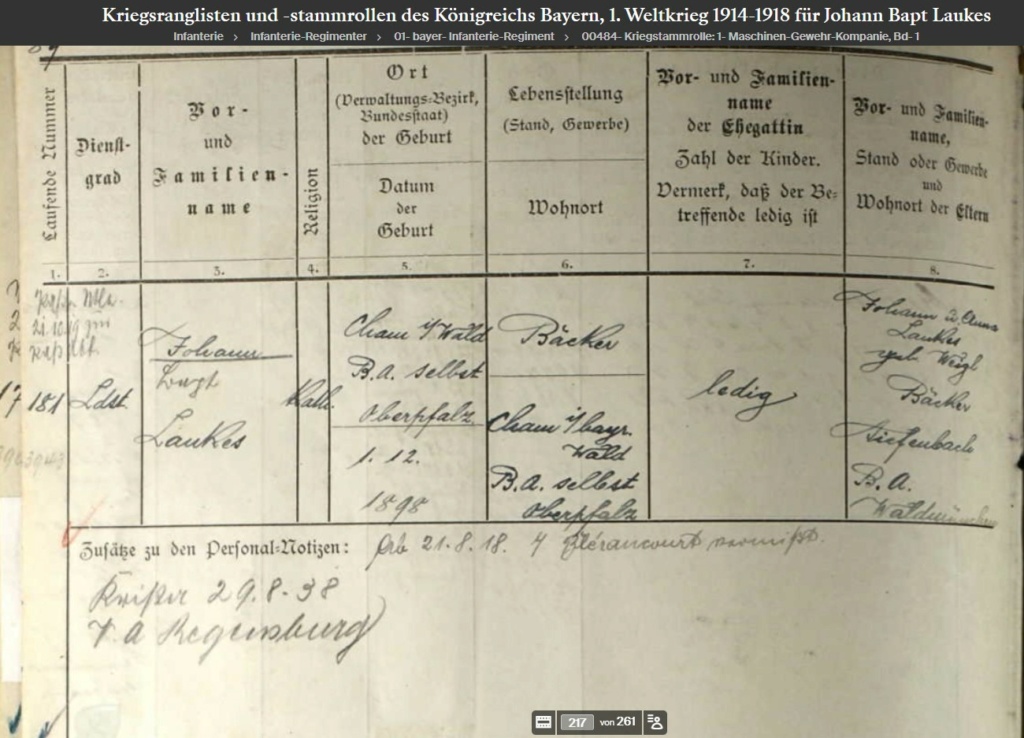 Kriegsranglisten und -stammrollen des Königreichs Bayern, 1. Weltkrieg 1914-1918 für Johann Bapt Laukes
Infanterie > Infanterie-Regimenter > 01- bayer- Infanterie-Regiment > 00484- Kriegstammrolle: 1- Maschinen-Gewehr-Kompanie, Bd- 1
Laufende Nummer
Dienst-
grad
Vor-
und
Familien-
name
Religion
Ort
(Verwaltungs-Bezirk,
Bundesstaat)
der Geburt
Datum
der
Geburt
Lebensstellung
(Stand, Gewerbe)
Wohnort
Vor- und Familien-
name
der Ehegattin
Zahl der Kinder.
Vermerk, daß der Be-
treffende ledig ist
Vor- und Familien-
name,
Stand oder Gewerbe
und
Wohnort der Eltern
1.
2.
3.
4.
5.
6.
7.
8.
181
Ldst
Johann
Laukes
Kath.
Cham i/Wald
B.A. selbst
Oberpfalz
1. 12.
1898
Bäcker
Cham i/bayr.
Wald
B.A. selbst
Oberpfalz
ledig
Johann u. Anna
Laukes
geb. Weigl
Bäcker
Tiefenbach
B.A.
Waldmünchen
Zusätze zu den Personal-Notizen: 21.8.18. Blérancourt vermißt.
29.8.38
V. a Regensburg
217 von 261